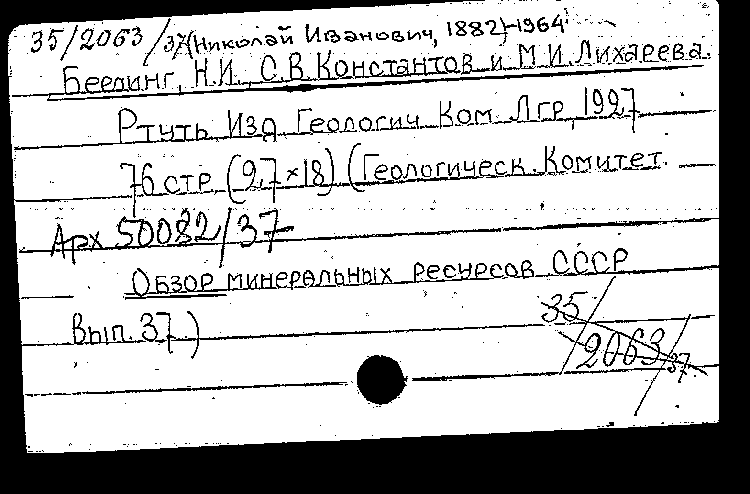 35/2063/37 (Николай Иванович, 1882)-1964
Беелинг, Н.И., С.В. Константов и М.И. Лихарева.
Ртуть. Изд. Геологич. Ком. Лгр., 1927
76 стр. (9,7×18) (Геологическ. Комитет.
Арх 50082/37
Обзор минеральных ресурсов СССР
Вып. 37.)
35/2063/37